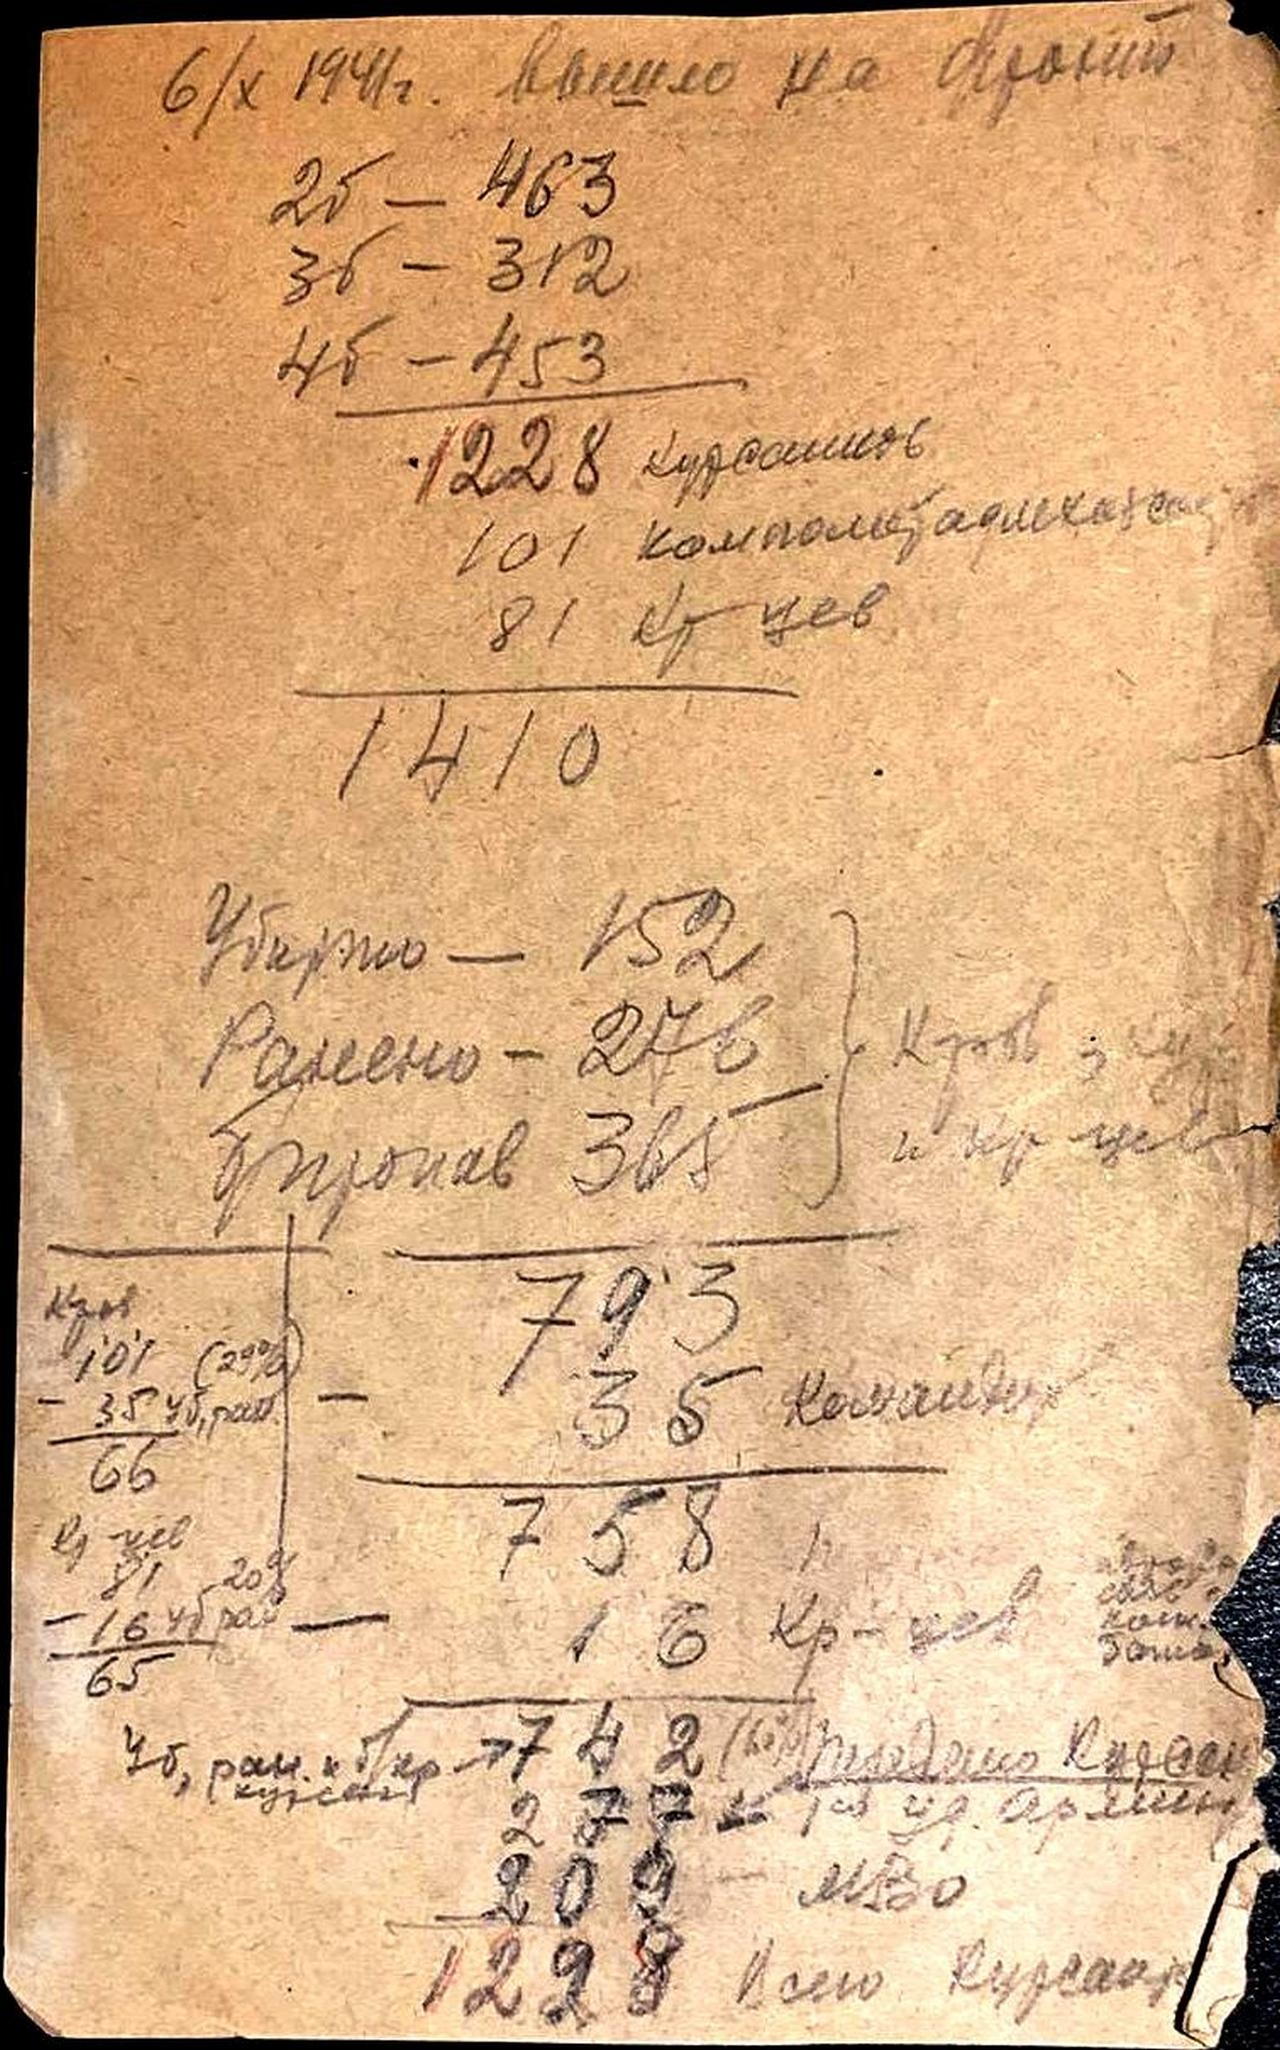 6/X 1941г. вышло на фронт
2б – 463
3б – 312
4б – 453
1228 курсантов
101 компомет
81 Кр-цев
1410
Убито — 152
Ранено – 276
б/пропав 365
и кр-цев
793
– 35 командир
758
– 16 Кр-цев
Уб, ран. и б/пр → 742 (60%) передано Курсан
курсант
277 уд. Армии
209 – МВО
1228 Всего Курсант
101 (29%)
– 35 уб, ран.
66
Кр-цев
81 20%
– 16 уб ран
65